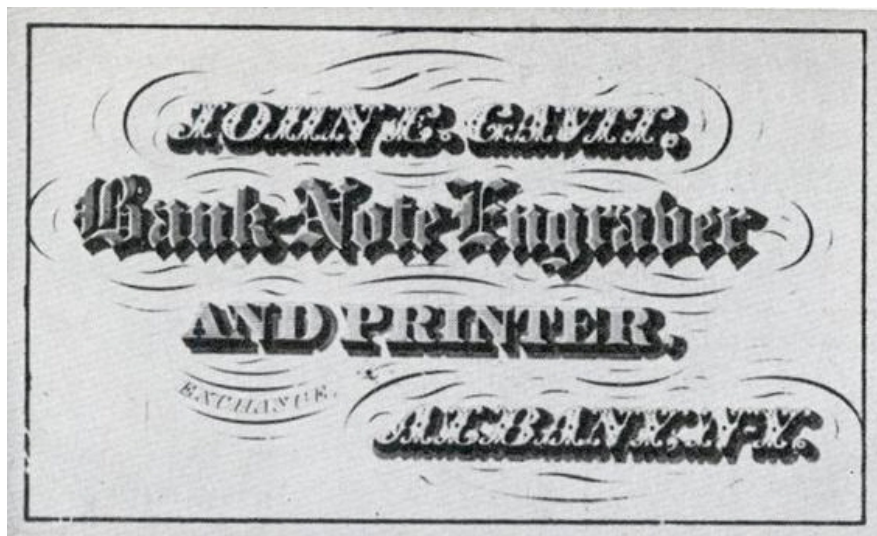 JOHN E. GAVIT.
Bank-Note Engraver
AND PRINTER,
EXCHANGE.
ALBANY. N.Y.